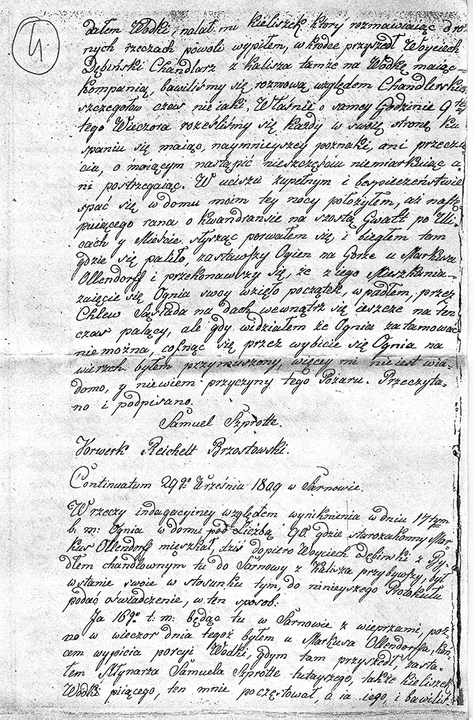 4.
dałem Wodki, nalał mi kieliszek ktory rozmawiaiąc o roż
nych rzeczach powoli wypiłem, w krotce przyszedł Woyciech
Dębinski Chandlarz z Kalisza także na Wodkę maiąc
kompanią, bawiliśmy się rozmową względem Chandlu
szczegołow czas nieiaki, Właśnie o samey Godzinie 9tey
tego Wieczora rozeszliśmy się każdy w swoię stronę ku
spaniu się maiąc, naymnieyszey poznaki, ani przeczu
cia, o maiącym nastąpić nieszczęściu niemiarkuiąc a
ni postrzegaiąc. W uciszu zupełnym i bespieczeństwie
spać się w domu moim tey nocy położyłem, aż nastę
puiącego rana o kwandransie na szostą Gwałt po Uli
cach y Mieście słysząc porwałem się i biegłem tam
gdzie się paliło, zastawszy Ogien na Gorze u Markusa
Ollendorff i przekonawszy się, że z iego Mieszkania
zaięcie się Ognia swoy wzięło początek, wpadłem, przez
Chlew Sąsiada na dach wewnątrz się ieszcze na ten
czas palący, ale gdy widziałem że Ognia zatamować
nie można, cofnąć się przez wybicie się Ognia na
wierzch byłem przymuszony, więcey mi nie iest wia
domo, y niewiem przyczyny tego Pożaru. Przeczyta
no i podpisano.
Samuel Szprotte.
Vorwerk Reichelt Brzostowski.
Continuatum 29go Września 1809 w Sarnowie.
W rzeczy indagacyiney względem wyniknienia w dniu 17tym
b. m. Ognia w domu pod Liczbą 90. gdzie starozakonny Mar
kus Ollendorf mieszkał, dziś dopiero Woyciech Dębinski z By
dłem chandlownym tu do Sarnowy z Kalisza przybywszy, był
wstanie swoie w stosunku tym, do ninieyszego Protokułu
podać oswiadczenie, w ten sposob.
Ja 16go t. m. będąc tu w Sarnowie z wieprzami, poź
no w wieczor dnia tegoż byłem u Markusa Ollendorffa, koń
cem wypicia porcyi Wodki, gdym tam przyszedł, zasta
łem Młynarza Samuela Szprotte tutayszego, także kieliszek
Wodki piiącego, ten mnie poczęstował, a ia iego, i bawiliś